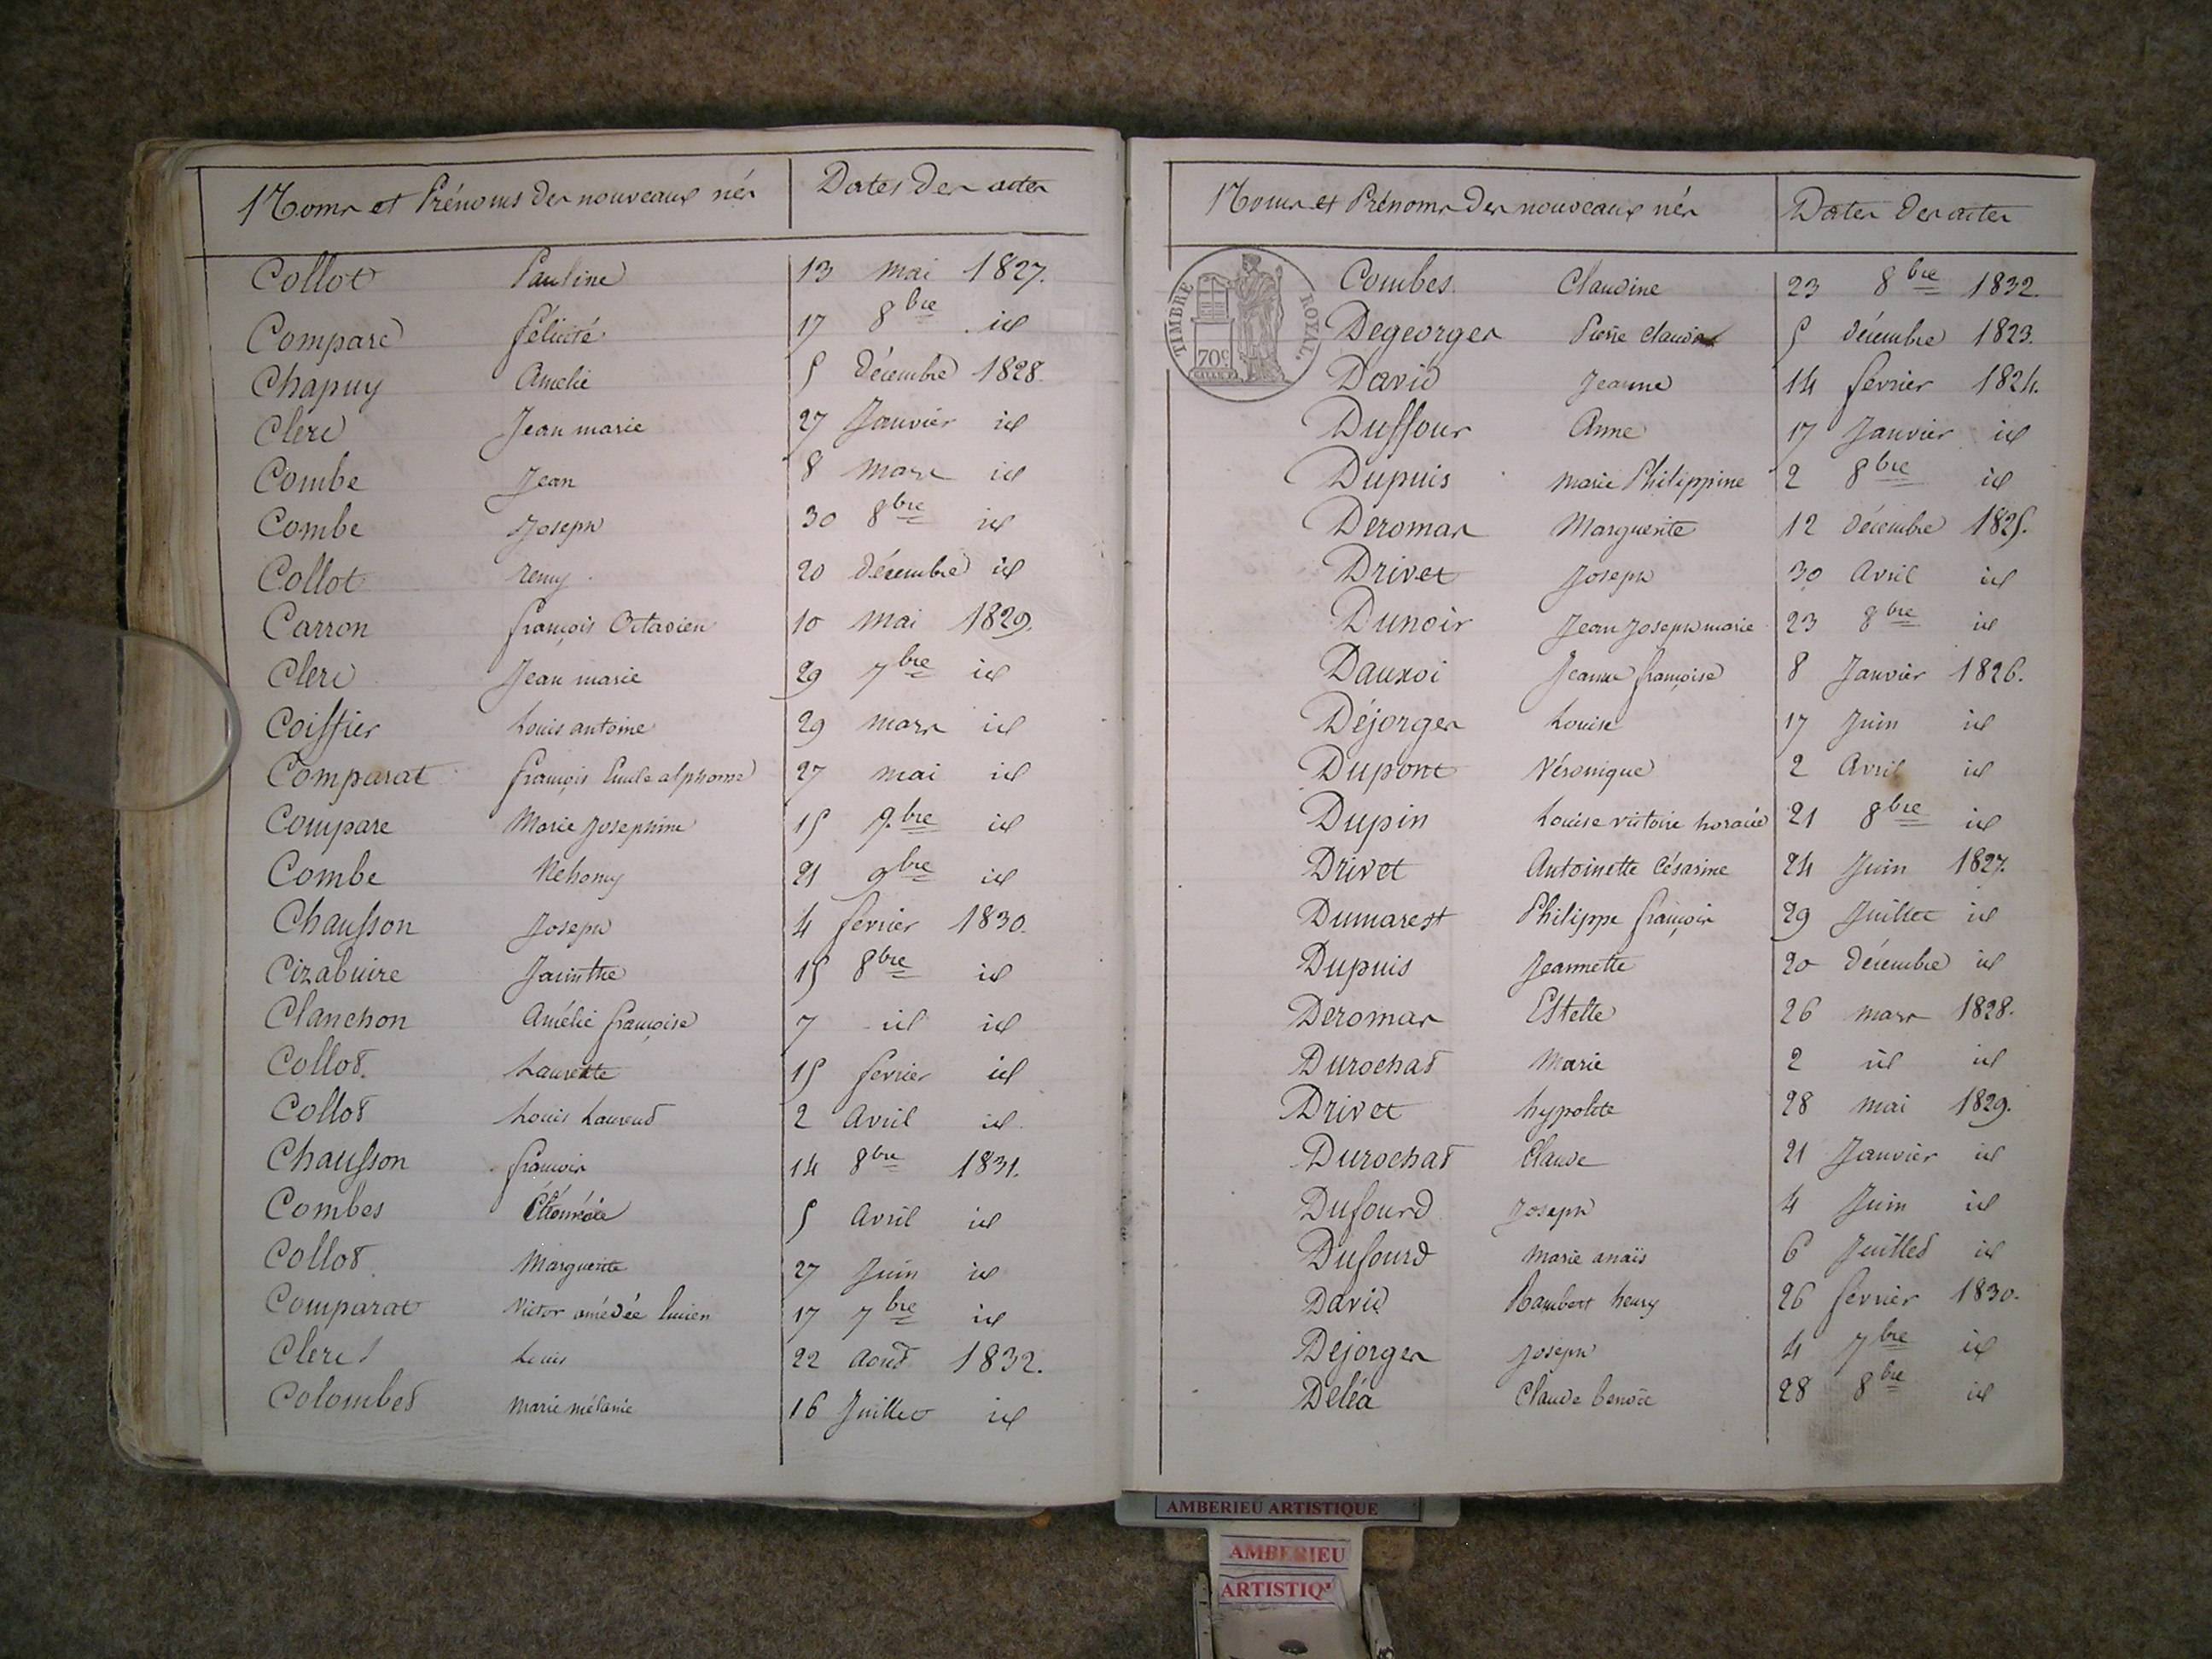 Noms et Prénoms des nouveaux nés Dates des actes
Collot Pauline 13 mai 1827.
Compare félicité 17 8bre id
Chapuy Amelie 5 Décembre 1828.
Clerc Jean marie 27 Janvier id
Combe Jean 8 mars id
Combe Joseph 30 8bre id
Collot remy 20 décembre id
Carron françois Octavien 10 mai 1829.
Clerc Jean marie 29 7bre id
Coiffier Louis antoine 29 mars id
Comparat françois Emile alphonse 27 mai id
Compare Marie Josephine 15 9.bre id
Combe 21 9bre id
Chausson Joseph 4 fevrier 1830.
Cizabuire Jacinthe 15 8bre id
Clanchon Amélie françoise 7 id id
Collot. Laurette 15 fevrier id
Collot Louis Laurent 2 Avril id
Chausson françois 14 8bre 1831.
Combes 5 Avril id
Collot Marguerite 27 Juin id
Comparat Victor amédée lucien 17 7bre id
Clerc Louis 22 Aout 1832.
Colombet Marie mélanie 16 Juillet id
Noms et Prénoms des nouveaux nés Dates des actes
TIMBRE ROYAL.
70c
Combes Claudine 23 8bre 1832.
Degeorges Pierre Claude 5 décembre 1823.
David Jeanne 14 fevrier 1824.
Duffour Anne 17 Janvier id
Dupuis Marie Philippine 2 8bre id
Deromas Marguerite 12 décembre 1825.
Drivet Joseph 30 Avril id
Dunoir Jean Joseph marie 23 8bre id
Dauxoi Jeanne françoise 8 Janvier 1826.
Déjorges Louise 17 Juin id
Dupont Véronique 2 Avril id
Dupin Louise victoire horacie 21 8bre id
Drivet Antoinette Césarine 24 Juin 1827.
Dumarest Philippe françois 29 Juillet id
Dupuis Jeannette 20 décembre id
Deromas Estelle 26 mars 1828.
Durochat Marie 2 id id
Drivet hypolite 28 mai 1829.
Durochat Claude 21 Janvier id
Dufourd Joseph 4 Juin id
Dufourd Marie anaïs 6 Juillet id
David Rambert henry 26 fevrier 1830.
Dejorges Joseph 4 7bre id
Deléa Claude benoit 28 8bre id
AMBERIEU ARTISTIQUE
AMBERIEU
ARTISTIQ